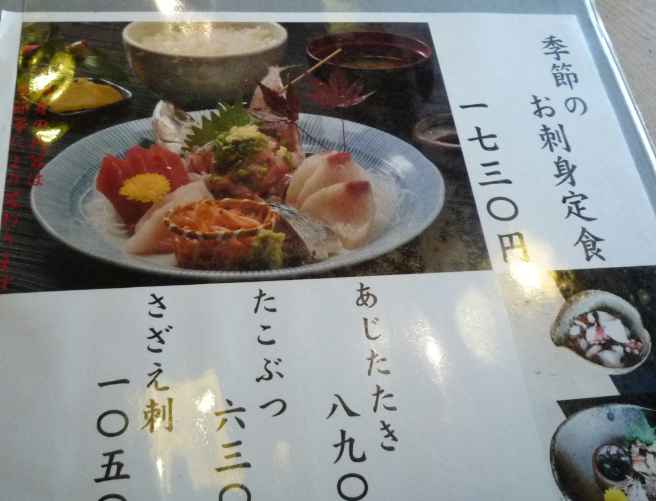 季節の
お刺身定食
一七三〇円
あじたたき
八九〇
たこぶつ
六三〇
さざえ刺
一〇五〇